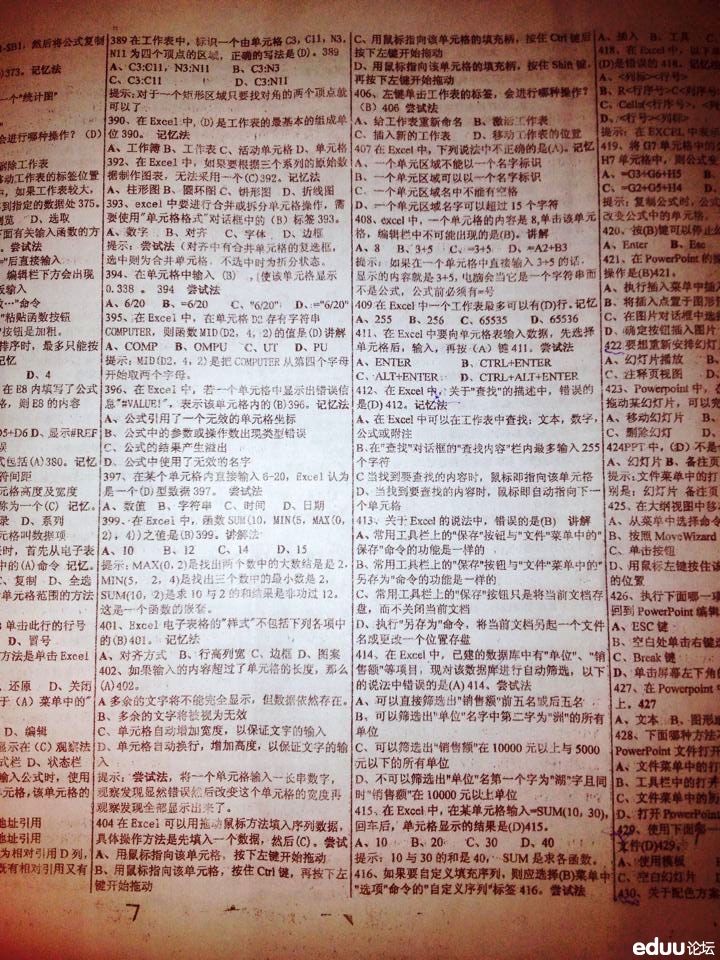 -SB1，然后将公式复制
)373。记忆法
一个"统计图"
会进行哪种操作? (D)
删除工作表
移动工作表的标签位置
中，如果工作表较大，
拿到指定的数据处 375。
浏览 D、选取
下面有关输入函数的方
。尝试法
="后直接输入
编辑栏下方会出现
板输入
"粘贴函数按钮
"按钮是加粗。
排序时，最多只能按
记忆
D、4
在 E8 内填写了公式
，则 E8 的内容
D5+D6 D、显示#REF
式包括(A)380。记忆
行间距
元格高度及宽度
称为一个(C)。记忆
录 D、系列
元格叫数据项
长时，首先从电子表
中的(A)命令 记忆。
C、复制 D、全选
单元格范围的方法
B 单击此行的行号
D、冒号
方法是单击 Excel
、还原 D、关闭
于(A) 菜单中的"
D、编辑
显示在(C)观察法
式栏 D、状态栏
输入公式时，使用
元格，该单元格的
地址引用
地址引用
为相对引用 D 列，
既有相对引用又有
389 在工作表中，标识一个由单元格 C3, C11, N3,
N11 为四个顶点的区域，正确的写法是(D)。389
A、C3:C11, N3:N11 B、C3:N3
C、C3:C11 D、C3:N11
提示:对于一个矩形区域只要找对角的两个顶点就
可以了
390、在 Excel 中，(D)是工作表的最基本的组成单
位 390。 记忆法
A、工作簿 B、工作表 C、活动单元格 D、单元格
392、在 Excel 中，如果要根据三个系列的原始数
据制作图表，无法采用一个(C)392。记忆法
A、柱形图 B、圆环图 C、饼形图 D、折线图
393、excel 中要进行合并或拆分单元格操作，需
要使用"单元格格式"对话框中的(B)标签 393。
A、数字 B、对齐 C、字体 D、边框
提示: 尝试法(对齐中有合并单元格的复选框，
选中则为合并单元格，不选中时为拆分状态。
394、在单元格中输入(B) ,使该单元格显示
0.338 。 394 尝试法
A、6/20 B、=6/20 C、"6/20" D、="6/20"
395、在 Excel 中，在单元格 D2 存有字符串
COMPUTER，则函数 MID(D2, 4, 2)的值是(D)讲解
A、COMP B、OMPU C、UT D、PU
提示: MID(D2, 4, 2)是把 COMPUTER 从第四个字母
开始取两个字母。
396、在 Excel 中，若一个单元格中显示出错误信
息"#VALUE!"，表示该单元格内的(B)396。记忆法
A、公式引用了一个无效的单元格坐标
B、公式中的参数或操作数出现类型错误
C、公式的结果产生溢出
D、公式中使用了无效的名字
397、在某个单格内直接输入 6-20，Excel 认为
是一个(D)型数据 397。 尝试法
A、数值 B、字符串 C、时间 D、日期
399、在 Excel 中，函数 SUM(10, MIN(5, MAX(0,
2), 4))之值是(B)399。讲解法
A、10 B、12 C、14 D、15
提示: MAX(0, 2)是找出两个数中的大数结是是 2，
MIN(5, 2, 4)是找出三个数中的最小数是 2，
SUM(10, 2)是求 10 与 2 的和结果是非功过 12。
这是一个函数的嵌套。
401、Excel 电子表格的"样式"不包括下列各项中
的(B)401。 记忆法
A、对齐方式 B、行高列宽 C、边框 D、图案
402、如果输入的内容超过了单元格的长度，那么
(A)402。
A 多余的文字将不能完全显示，但数据依然存在。
B、多余的文字将被视为无效
C、单元格自动增加宽度，以保证文字的输入
D、单元格自动换行，增加高度，以保证文字的输
入
提示: 尝试法，将一个单元格输入一长串数字，
观察发现显然错误然后改变这个单元格的宽度再
观察发现全部显示出来了。
404 在 Excel 可以用拖动鼠标方法填入序列数据，
具体操作方法是先填入一个数据，然后(C)。尝试
A、用鼠标指向该单元格，按下左键开始拖动
B、用鼠标指向该单元格，按住 Ctrl 键，再按下左
键开始拖动
C、用鼠标指向该单元格的填充柄，按住 Ctrl 键后
按下左键开始拖动
D、用鼠标指向该单元格的填充柄，按住 Shift 键，
再按下左键开始拖动
406、左键单击工作表的标签，会进行哪种操作?
(B) 406 尝试法
A、给工作表重新命名 B、激活工作表
C、插入新的工作表 D、移动工作表的位置
407 在 Excel 中，下列说法中不正确的是(A)。记忆
A、一个单元区域不能以一个名字标识
B、一个单元区域可以以一个名字标识
C、一个单元区域名中不能有空格
D、一个单元区域名字可以超过 15 个字符
408、excel 中，一个单元格的内容是 8,单击该单元
格，编辑栏中不可能出现的是(B)。讲解
A、8 B、3+5 C、=3+5 D、=A2+B3
提示: 如果在一个单元格中直接输入 3+5 的话，
显示的内容就是 3+5, 电脑会当它是一个字符串而
不是公式，公式前必须有=号
409 在 Excel 中一个工作表最多可以有(D)行。记忆
A、255 B、256 C、65535 D、65536
411、在 Excel 中要向单元格表输入数据，先选择
单元格后，输入，再按(A)键 411。尝试法
A、ENTER B、CTRL+ENTER
C、ALT+ENTER D、CTRL+ALT+ENTER
412、在 Excel 中，关于"查找"的描述中，错误的
是(D) 412。记忆法
A、在 Excel 中可以在工作表中查找: 文本，数字，
公式或附注
B、在"查找"对话框的"查找内容"栏内最多输入 255
个字符
C 当找到要查找的内容时，鼠标即指向该单元格
D、当找到要查找的内容时，鼠标即自动指向下一
个单元格
413、关于 Excel 的说法中，错误的是(B) 讲解
A、常用工具栏上的"保存"按钮与"文件"菜单中的"
保存"命令的功能是一样的
B、常用工具栏上的"保存"按钮与"文件"菜单中的"
另存为"命令的功能是一样的
C、常用工具栏上的"保存"按钮只是将当前文档存
盘，而不关闭当前文档
D、执行"另存为"命令，将当前文档另起一个文件
名或更改一个位置存盘
414、在 Excel 中，已建的数据库中有"单位"、"销
售额"等项目，现对该数据库进行自动筛选，以下
的说法中错误的是(A) 414、尝试法
A、可以直接筛选出"销售额"前五名或后五名
B、可以筛选出"单位"名字中第二字为"洲"的所有
单位
C、可以筛选出"销售额"在 10000 元以上与 5000
元以下的所有单位
D、不可以筛选出"单位"名第一个字为"湖"字且同
时"销售额"在 10000 元以上单位
415、在 Excel 中，在某单元格输入=SUM(10, 30),
回车后，单元格显示的结果是(D)415。
A、10 B、20 C、30 D、40
提示: 10 与 30 的和是 40，SUM 是求各函数。
416、如果要自定义填充序列，则应选择(B)菜单中
"选项"命令的"自定义序列"标签 416。尝试法
A、插入 B、工具 C、
418、在 Excel 中，以下
(D)是错误的 418。记忆
A、<列标><行号>
B、R<行序号>C<列序号
C、Cells(<行序号>, <列
D、<行号><列号>
提示: 在 EXCEL 中表
419、将 G7 单元格中的公
H7 单元格中，则公式变
A、=G3+G6+H5 B、
C、=G2+G5+H4 D、
提示: 复制公式时，公
改变公式中的单元格，
420、按(B)键可以停止幻
A、Enter B、Esc
421、在 PowerPoint 的
操作是(B)421。
A、执行插入菜单中插
B、将插入点置于图形
C、在图片对话框中选择
D、确定按钮插入图片
422 要想重新安排幻灯
A、幻灯片放映 B、
C、注释页视图 D、
423、Powerpoint 中，
拖动某幻灯片，可以完
A、移动幻灯片 B、
C、删除幻灯 D、
424PPT 中，(D) 不是合
A、幻灯片 B、备注页
提示:文件菜单中的打
别是: 幻灯片 备注页
425、在大纲视图中移
A、从菜单中选择命令
B、按照 MoveWizard
C、单击按钮
D、用鼠标左键按住该
的位置
426、执行下面哪一项
回到 PowerPoint 编辑
A、ESC 键
B、空白处单击右键选
C、Break 键
D、单击屏幕左下角的
427、在 Powerpoint
上。427
A、文本 B、图形
428、下面哪种方法不
PowerPoint 文件打开
A、文件菜单中的打开
B、工具栏中的打开
C、文件菜单中的另
D、打开 PowerPoint
429、使用下面哪一
文件(D)429。
A、使用模板
C、空白幻灯片
430、关于配色方案
7
eduu论坛